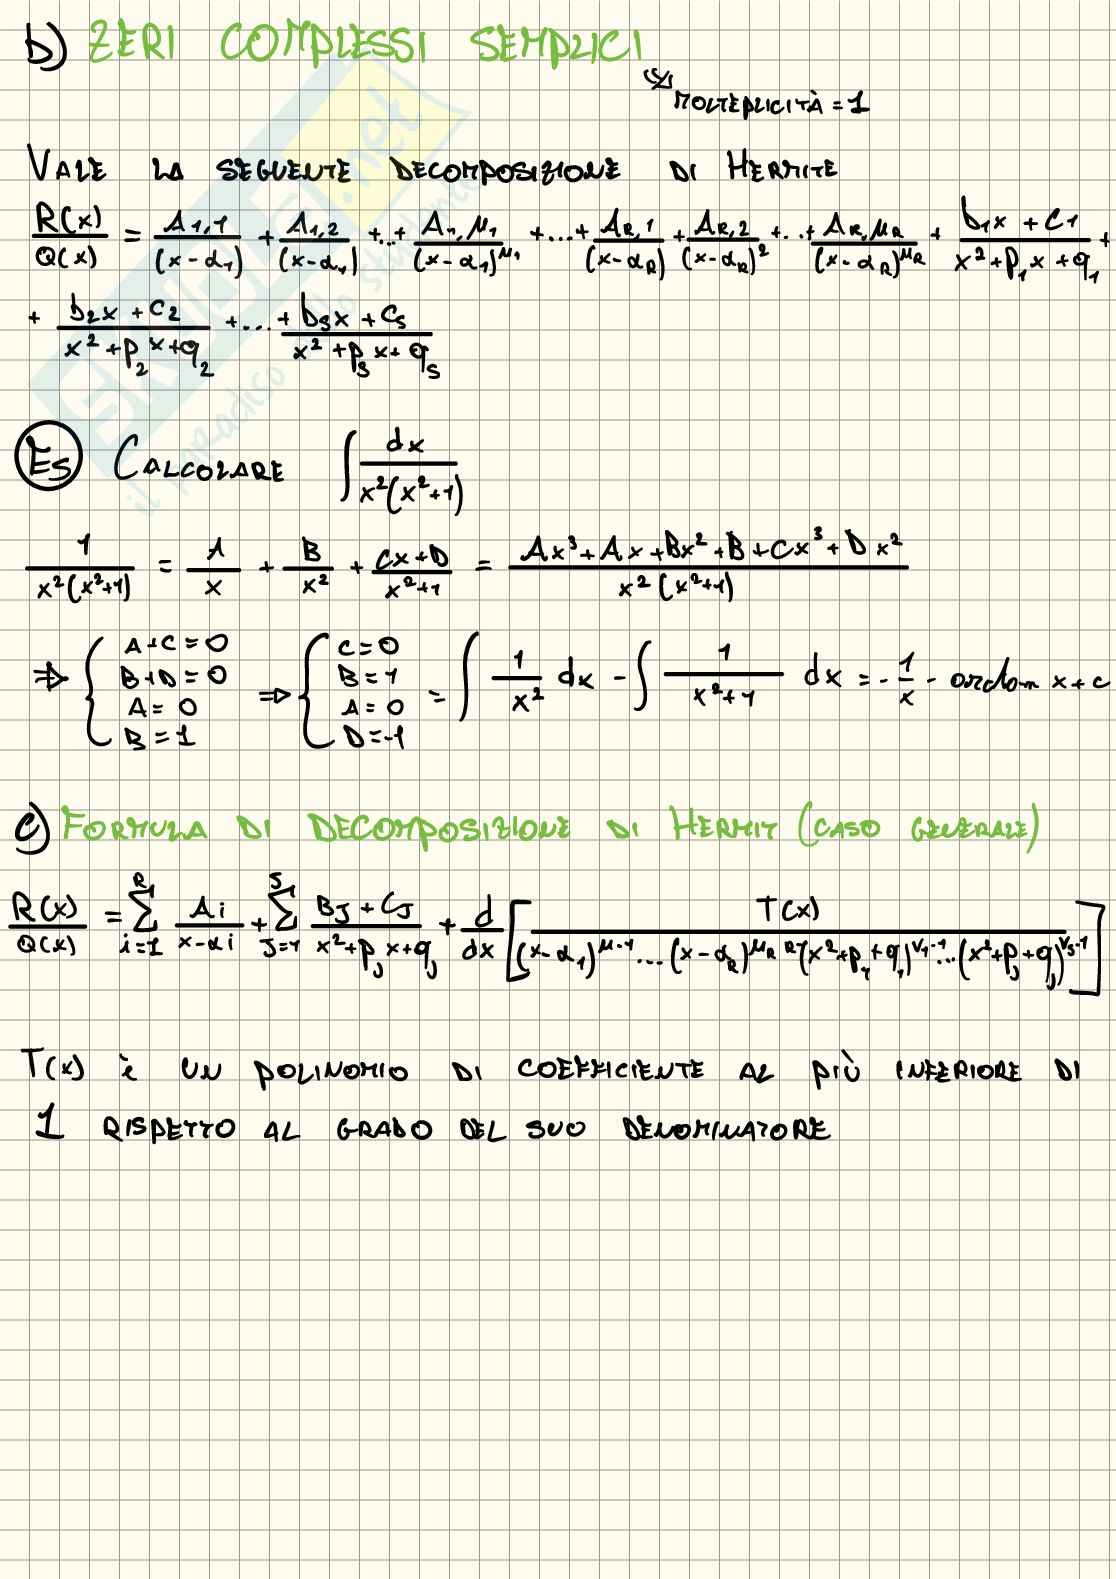 b) ZERI COMPLESSI SEMPLICI
MOLTEPLICITÀ = 1
VALE LA SEGUENTE DECOMPOSIZIONE DI HERMITE
R(x)/Q(x) = A1,1/(x-α1) + A1,2/(x-α1) +..+ A1,μ1/(x-α1)^μ1 +...+ AR,1/(x-αR) + AR,2/(x-αR)^2 +..+ AR,μR/(x-αR)^μR + b1x + c1/x²+p1x+q1 +
+ b2x + c2/x²+p2x+q2 +...+ bsx + cs/x²+psx+qs
ES CALCOLARE ∫ dx/x²(x²+1)
1/x²(x²+1) = A/x + B/x² + Cx+D/x²+1 = Ax³+Ax+Bx²+B+Cx³+Dx²/x²(x²+1)
⇒ { A+C=0 B+D=0 A=0 B=1 ⇒ { C=0 B=1 A=0 D=-1 = ∫ 1/x² dx - ∫ 1/x²+1 dx = -1/x - arctan x + c
c) FORMULA DI DECOMPOSIZIONE DI HERMIT (CASO GENERALE)
R(x)/Q(x) = Σ i=1 R Ai/x-αi + Σ J=1 S BJ + CJ/x²+pJx+qJ + d/dx [ T(x)/(x-α1)^μ-1 ... (x-αR)^μR (x²+p1+q1)^V1-1 ... (x²+pJ+qJ)^VS-1 ]
T(x) è UN POLINOMIO DI COEFFICIENTE AL PIÙ INFERIORE DI
1 RISPETTO AL GRADO DEL SUO DENOMINATORE
SKUOLA.net
il paradiso dello studente